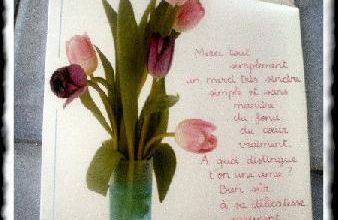 Merci tout
simplement
un merci très sincère
simple et sans
manière
du fond
du cœur
vraiment.
A quoi distingue
t on une amie ?
Bien sûr
à sa délicatesse